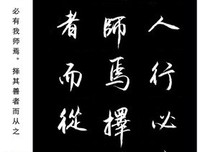 人行必
師焉擇
者而從
必有我师焉。择其善者而从之